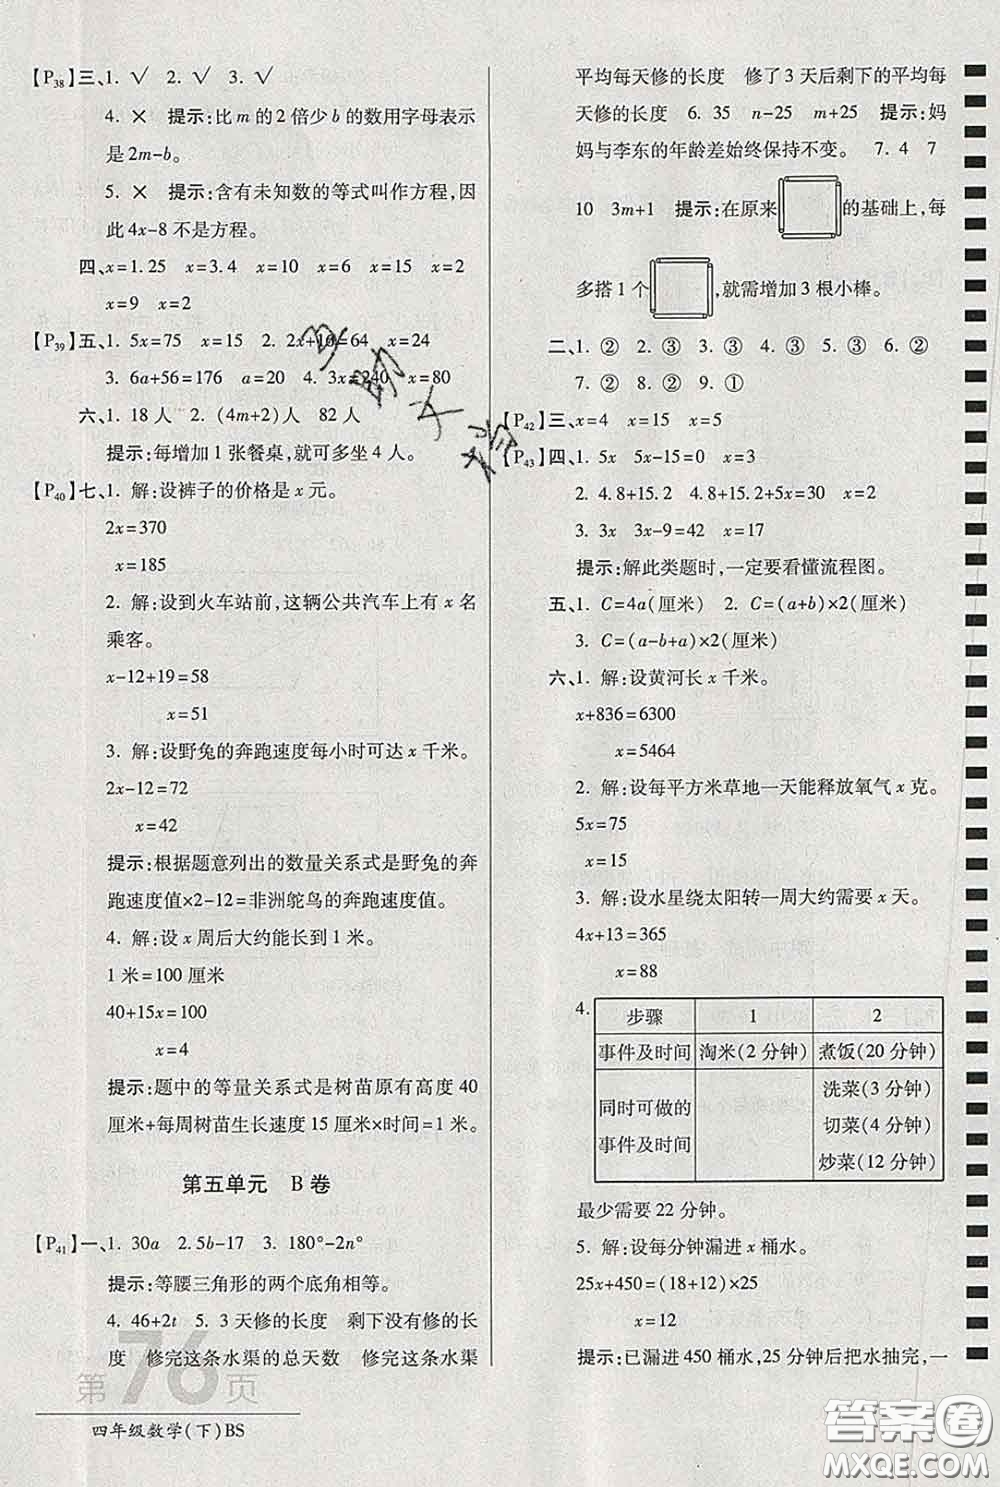 【P38】三、1. √ 2. √ 3. √
4. × 提示:比 m 的 2 倍少 b 的数用字母表示
是 2m-b。
5. × 提示:含有未知数的等式叫作方程,因
此 4x-8 不是方程。
四、x=1.25 x=3.4 x=10 x=6 x=15 x=2
x=9 x=2
【P39】五、1. 5x=75 x=15 2. 2x+16=64 x=24
3. 6a+56=176 a=20 4. 3x=240 x=80
六、1. 18 人 2. (4m+2)人 82 人
提示:每增加 1 张餐桌,就可多坐 4 人。
【P40】七、1. 解:设裤子的价格是 x 元。
2x=370
x=185
2. 解:设到火车站前,这辆公共汽车上有 x 名
乘客。
x-12+19=58
x=51
3. 解:设野兔的奔跑速度每小时可达 x 千米。
2x-12=72
x=42
提示:根据题意列出的数量关系式是野兔的奔
跑速度值×2-12=非洲鸵鸟的奔跑速度值。
4. 解:设 x 周后大约能长到 1 米。
1 米=100 厘米
40+15x=100
x=4
提示:题中的等量关系式是树苗原有高度 40
厘米+每周树苗生长速度 15 厘米×时间=1 米。
第五单元 B 卷
【P41】一、1. 30a 2. 5b-17 3. 180°-2n°
提示:等腰三角形的两个底角相等。
4. 46+2t 5. 3 天修的长度 剩下没有修的长
度 修完这条水渠的总天数 修完这条水渠
平均每天修的长度 修了 3 天后剩下的平均每
天修的长度 6. 35 n-25 m+25 提示:妈
妈与李东的年龄差始终保持不变。 7. 4 7
10 3m+1 提示:在原来 的基础上,每
多搭 1 个 ,就需增加 3 根小棒。
二、1. ② 2. ③ 3. ③ 4. ③ 5. ③ 6. ②
7. ② 8. ② 9. ①
【P42】三、x=4 x=15 x=5
【P43】四、1. 5x 5x-15=0 x=3
2. 4.8+15.2 4.8+15.2+5x=30 x=2
3. 3x 3x-9=42 x=17
提示:解此类题时,一定要看懂流程图。
五、1. C=4a(厘米) 2. C=(a+b)×2(厘米)
3. C=(a-b+a)×2(厘米)
六、1. 解:设黄河长 x 千米。
x+836=6300
x=5464
2. 解:设每平方米草地一天能释放氧气 x 克。
5x=75
x=15
3. 解:设水星绕太阳转一周大约需要 x 天。
4x+13=365
x=88
4. 步骤 1 2
事件及时间 淘米(2 分钟) 煮饭(20 分钟)
同时可做的
事件及时间
洗菜(3 分钟)
切菜(4 分钟)
炒菜(12 分钟)
最少需要 22 分钟。
5. 解:设每分钟漏进 x 桶水。
25x+450=(18+12)×25
x=12
提示:已漏进 450 桶水,25 分钟后把水抽完,一
第76页
四年级数学(下)BS
答案圈
MXQE.COM